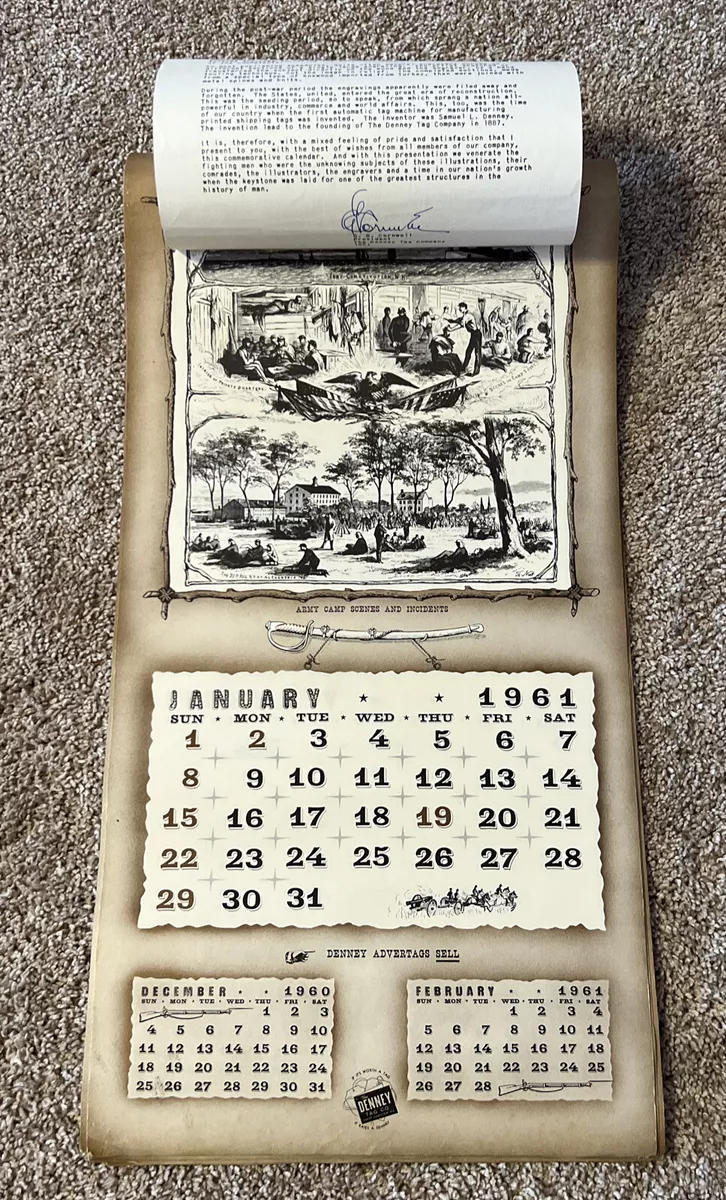 During the post-war period the engravings apparently were filed away and
forgotten. The States, united, entered the great era of reconstruction.
This was the seeding period, so to speak, from which sprang a nation all
powerful in industry, commerce and world affairs. This, too, was the time
of our country when the first automatic tag machine for manufacturing
printed shipping tags was founded. The inventor was Samuel L. Denney.
The invention lead to the founding of The Denney Tag Company in 1887.
It is, therefore, with a mixed feeling of pride and satisfaction that I
present to you, with the best of wishes from all members of our company,
this commemorative calendar. And with this presentation we venerate the
fighting men who were the unknowing subjects of these illustrations, their
comrades, the illustrators, the engravers and a time in our nation's growth
when the keystone was laid for one of the greatest structures in the
history of man.
President
The Denney Tag Company
ARMY CAMP SCENES AND INCIDENTS
JANUARY 1961
SUN MON TUE WED THU FRI SAT
1 2 3 4 5 6 7
8 9 10 11 12 13 14
15 16 17 18 19 20 21
22 23 24 25 26 27 28
29 30 31
DENNEY ADVERTAGS SELL
DECEMBER 1960
SUN MON TUE WED THU FRI SAT
1 2 3
4 5 6 7 8 9 10
11 12 13 14 15 16 17
18 19 20 21 22 23 24
25 26 27 28 29 30 31
FEBRUARY 1961
SUN MON TUE WED THU FRI SAT
1 2 3 4
5 6 7 8 9 10 11
12 13 14 15 16 17 18
19 20 21 22 23 24 25
26 27 28
IF IT'S WORTH A TAG
DENNEY
TAG CO.
IT RATES A DENNEY